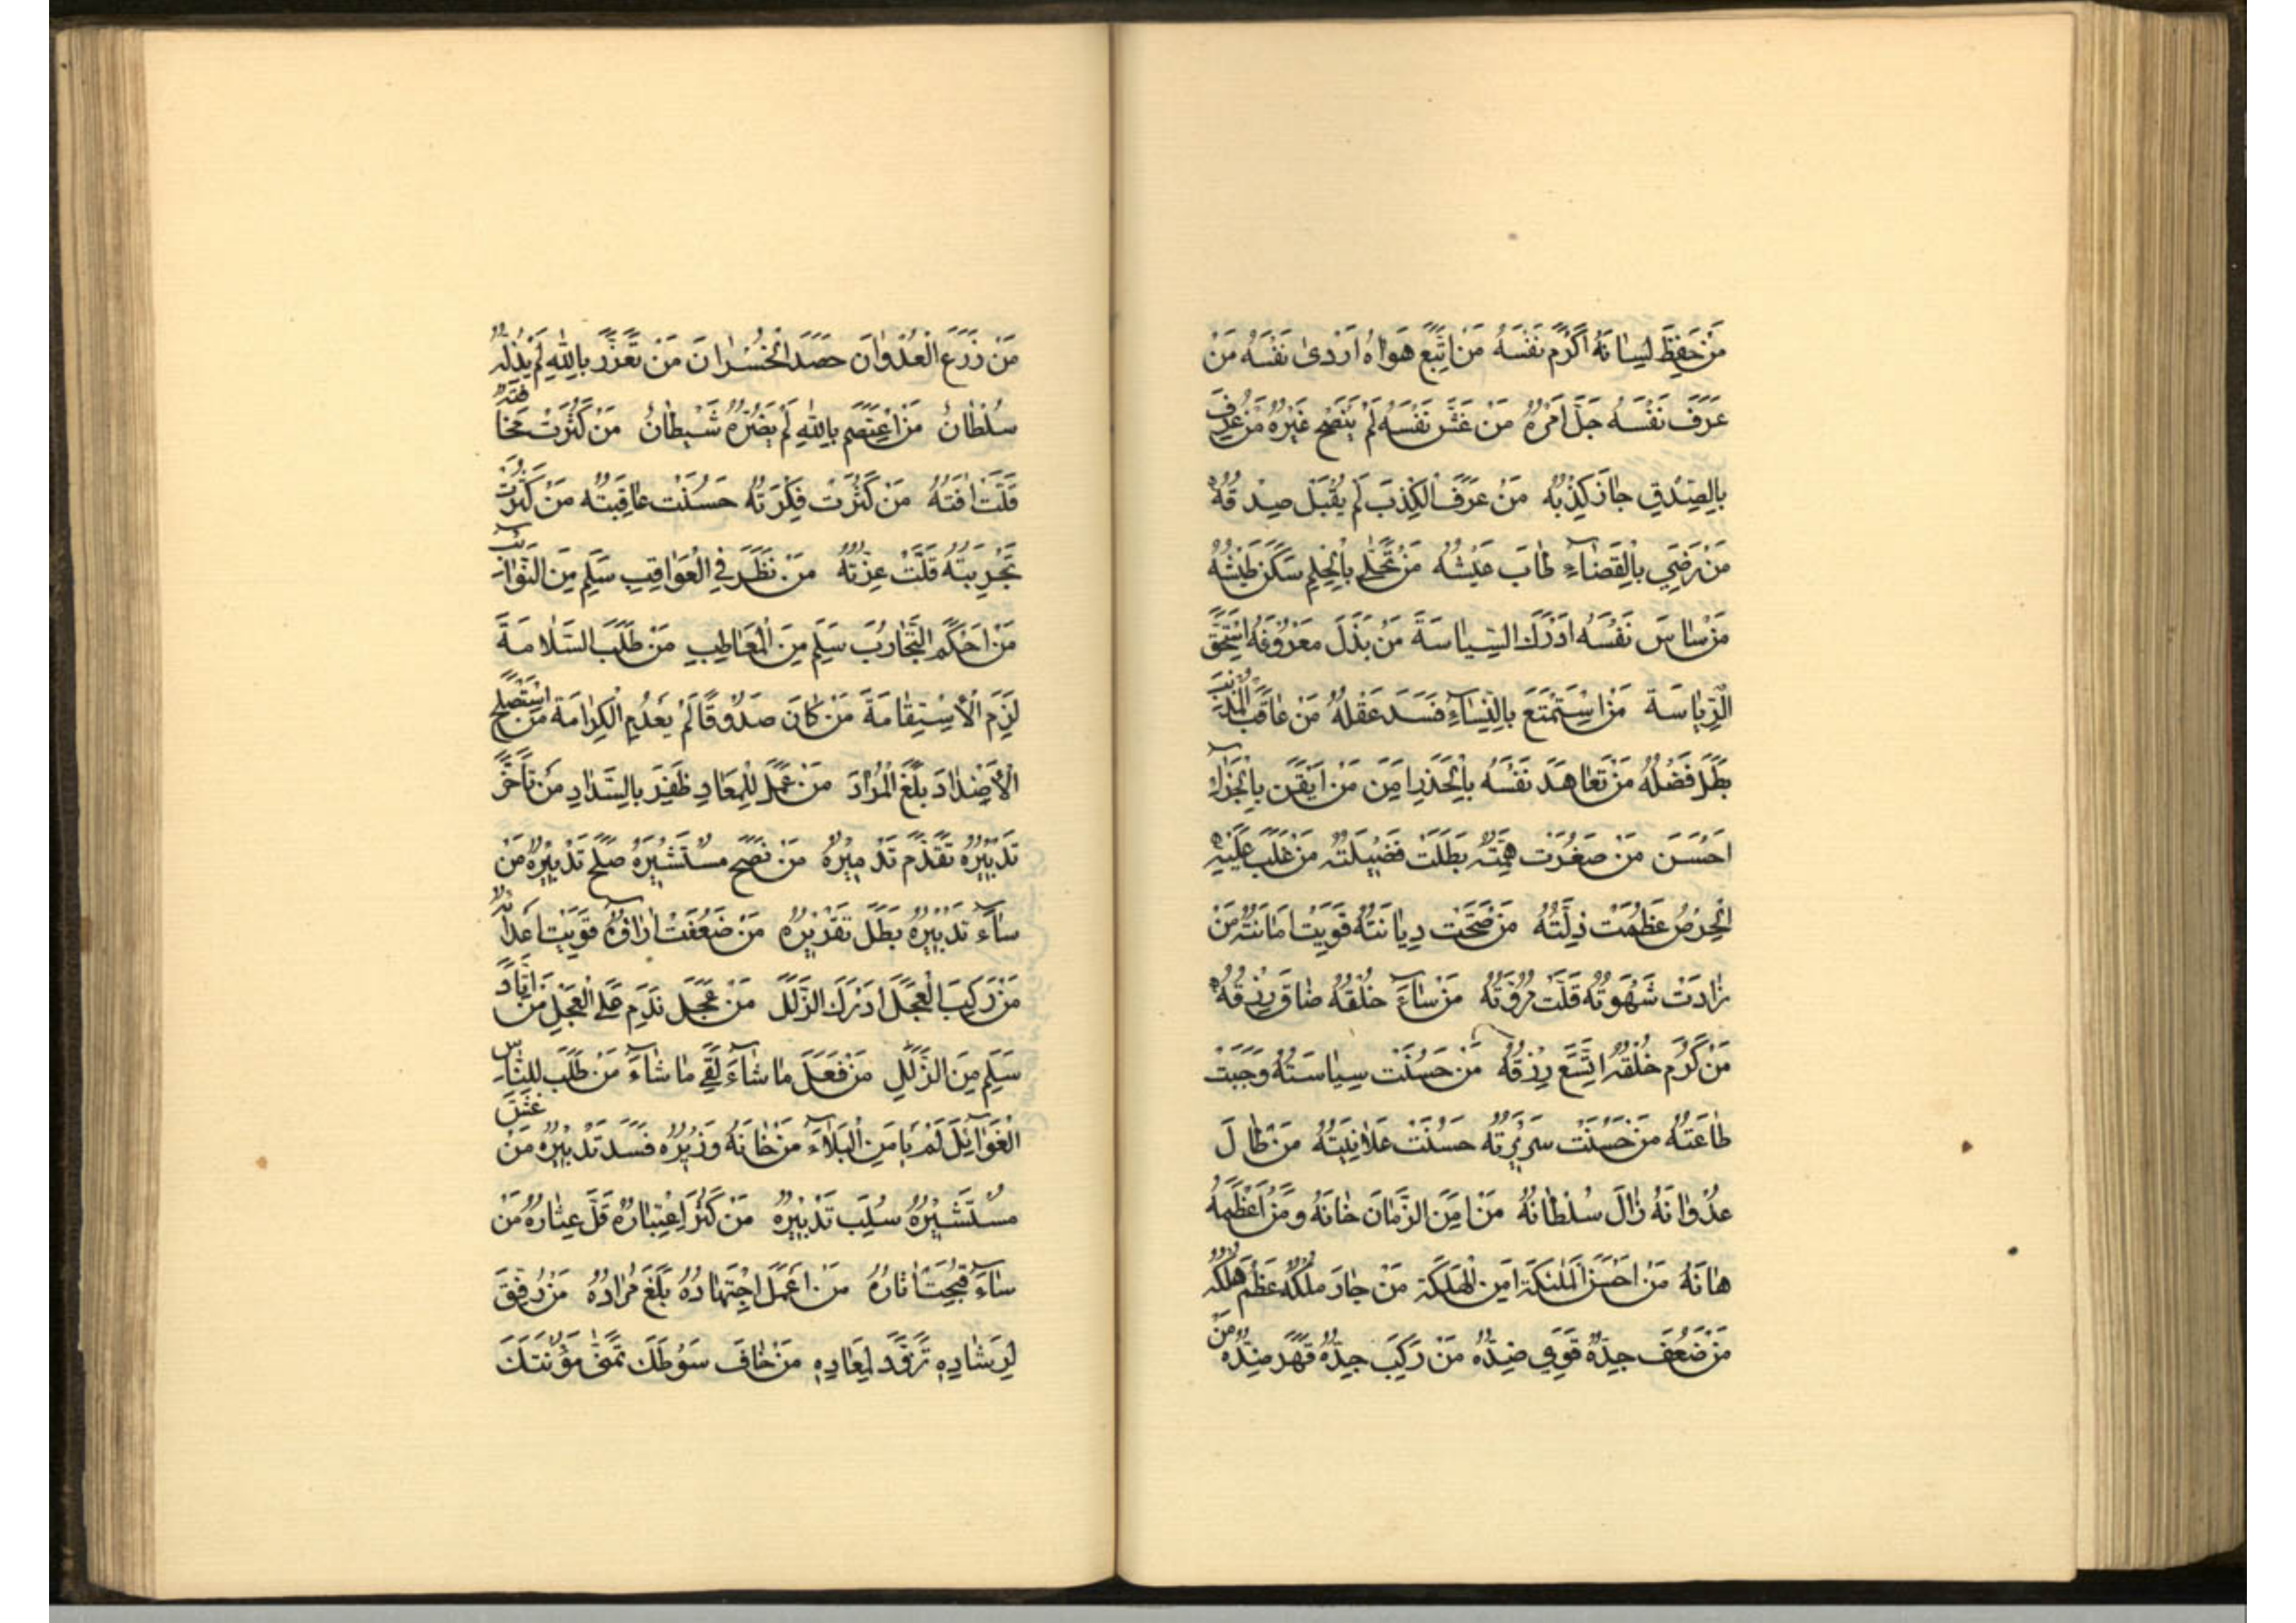 مَنْ حَفِظَ لِسَانَهُ اَكْرَمَ نَفْسَهُ مَنِ اتَّبَعَ هَوَاهُ اَرْدٰى نَفْسَهُ مَنْ
عَرَفَ نَفْسَهُ جَلَّ اَمْرُهُ مَنْ غَشَّ نَفْسَهُ لَمْ يَنْصَحْ غَيْرَهُ مَنْ عُرِفَ
بِالصِّدْقِ جَازَ كِذْبُهُ مَنْ عُرِفَ الْكِذْبَ لَمْ يُقْبَلْ صِدْقُهُ
مَنْ رَضِيَ بِالْقَضَاءِ طَابَ عَيْشُهُ مَنْ تَحَلّٰى بِالْحِلْمِ سَكَنَ طَيْشُهُ
مَنْ سَاسَ نَفْسَهُ اَدْرَكَ السِّيَاسَةَ مَنْ بَذَلَ مَعْرُوفَهُ اسْتَحَقَّ
الرِّيَاسَةَ مَنِ اسْتَمْتَعَ بِالنِّسَاءِ فَسَدَ عَقْلُهُ مَنْ عَاقَبَ الْمُذْنِبَ
بَطَلَ فَضْلُهُ مَنْ تَعَاهَدَ نَفْسَهُ بِالْحَذَرِ اَمِنَ مَنْ اَيْقَنَ بِالْجَزَاءِ
اَحْسَنَ مَنْ صَغُرَتْ هِمَّتُهُ بَطَلَتْ فَضِيلَتُهُ مَنْ غَلَبَ عَلَيْهِ
الْحِرْصُ عَظُمَتْ ذِلَّتُهُ مَنْ صَحَّتْ دِيَانَتُهُ قَوِيَتْ اَمَانَتُهُ مَنْ
زَادَتْ شَهْوَتُهُ قَلَّتْ مُرُوَّتُهُ مَنْ سَاءَ خُلْقُهُ ضَاقَ رِزْقُهُ
مَنْ كَرُمَ خُلْقُهُ اتَّسَعَ رِزْقُهُ مَنْ حَسُنَتْ سِيَاسَتُهُ وَجَبَتْ
طَاعَتُهُ مَنْ حَسُنَتْ سَرِيرَتُهُ حَسُنَتْ عَلَانِيَتُهُ مَنْ طَالَ
عُدْوَانُهُ زَالَ سُلْطَانُهُ مَنْ اَمِنَ الزَّمَانَ خَانَهُ وَمَنْ اَعْظَمَهُ
هَانَهُ مَنْ اَحْسَنَ الْمَلَكَةَ اَمِنَ الْهَلَكَةَ مَنْ جَارَ مُلْكُهُ عَظُمَ هُلْكُهُ
مَنْ ضَعُفَ جِدُّهُ قَوِيَ ضِدُّهُ مَنْ رَكِبَ جِدَّهُ قَهَرَ ضِدَّهُ مَنْ
مَنْ زَرَعَ الْعُدْوَانَ حَصَدَ الْخُسْرَانَ مَنْ تَعَزَّزَ بِاللهِ لَمْ يُذِلَّهُ
سُلْطَانٌ مَنِ اعْتَصَمَ بِاللهِ لَمْ يَضُرَّهُ شَيْطَانٌ مَنْ كَثُرَتْ مَخَافَتُهُ
قَلَّتْ اٰفَتُهُ مَنْ كَثُرَتْ فِكْرَتُهُ حَسُنَتْ عَاقِبَتُهُ مَنْ كَثُرَتْ
تَجْرِبَتُهُ قَلَّتْ عِزَّتُهُ مَنْ نَظَرَ فِي الْعَوَاقِبِ سَلِمَ مِنَ النَّوَائِبِ
مَنْ اَحْكَمَ التَّجَارُبَ سَلِمَ مِنَ الْمَعَاطِبِ مَنْ طَلَبَ السَّلَامَةَ
لَزِمَ الْاِسْتِقَامَةَ مَنْ كَانَ صَدُوقًا لَمْ يَعْدُمِ الْكِرَامَةَ مَنِ اسْتَصْلَحَ
الْاَضْدَادَ بَلَغَ الْمُرَادَ مَنْ عَمِلَ لِلْمَعَادِ ظَفِرَ بِالسَّدَادِ مَنْ تَاَخَّرَ
تَدْبِيْرُهُ تَقَدَّمَ تَدْمِيْرُهُ مَنْ نَصَحَ مُسْتَشِيْرَهُ صَلُحَ تَدْبِيْرُهُ مَنْ
سَاءَ تَدْبِيْرُهُ بَطَلَ تَقْدِيْرُهُ مَنْ ضَعُفَتْ اٰرَاؤُهُ قَوِيَتْ اَعْدَاؤُهُ
مَنْ رَكِبَ الْعَجَلَ اَدْرَكَ الزَّلَلَ مَنْ عَجِلَ نَدِمَ عَلَى الْعَجَلِ مَنِ اتَّادَ
سَلِمَ مِنَ الزَّلَلِ مَنْ فَعَلَ مَا شَاءَ لَقِيَ مَا شَاءَ مَنْ طَلَبَ لِلنَّاسِ
الْغَوَائِلَ لَمْ يَامَنِ الْبَلَاءَ مَنْ خَانَهُ وَزِيْرُهُ فَسَدَ تَدْبِيْرُهُ مَنْ غَشَّ
مُسْتَشِيْرَهُ سُلِبَ تَدْبِيْرُهُ مَنْ كَثُرَ اعْتِبَارُهُ قَلَّ عِثَارُهُ مَنْ
سَاءَ قَبُحَتْ اٰثَارُهُ مَنْ اَعْمَلَ اجْتِهَادَهُ بَلَغَ مُرَادَهُ مَنْ رُفِقَ
لِرَشَادِهِ تَزَوَّدَ لِمَعَادِهِ مَنْ خَافَ سَوْطَكَ تَمَنّٰى مَوْتَكَ